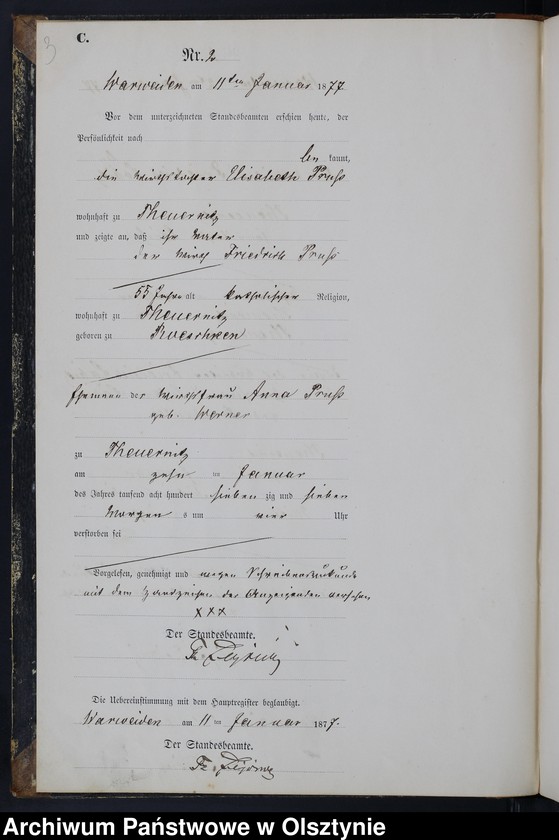 3
C.
Nr. 2
Warweiden am 11ten Januar 1877
Vor dem unterzeichneten Standesbeamten erschien heute, der
Persönlichkeit nach
be kannt,
die Wirthstochter Elisabeth Pruß
wohnhaft zu Theuernitz
und zeigte an, daß ihr Vater
der Wirth Friedrich Pruß
55 Jahre alt katholischer Religion,
wohnhaft zu Theuernitz
geboren zu
Ehemann der Wirthsfrau Anna Pruß
geb. Werner
zu Theuernitz
am zehn ten Januar
des Jahres tausend acht hundert sieben zig und sieben
Morgens um vier Uhr
verstorben sei
Vorgelesen, genehmigt und wegen Schreibensunkunde
mit dem Handzeichen des Anzeigenden versehen
XXX
Der Standesbeamte.
Die Uebereinstimmung mit dem Hauptregister beglaubigt.
Warweiden am 11 ten Januar 1877.
Der Standesbeamte.
Archiwum Państwowe w Olsztynie